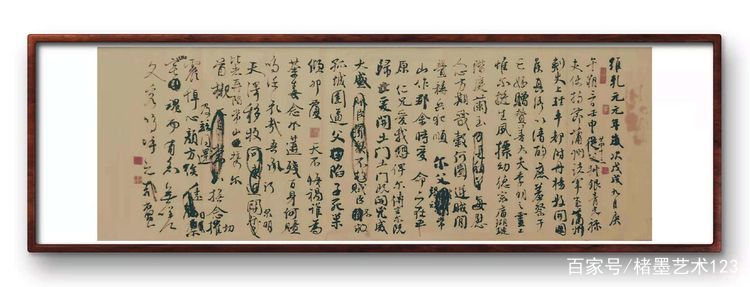 維乾元元年歲次戊戌九月庚
午朔三日壬申第十三叔銀青光祿
夫使持節蒲州諸軍事蒲州
刺史上輕車都尉丹楊縣開國
侯真卿以清酌庶羞祭于
亡姪贈贊善大夫季明之靈曰
惟爾挺生夙標幼德宗廟瑚璉
階庭蘭玉每慰
人心方期戩穀何圖逆賊間
釁稱兵犯順爾父竭誠常
山作郡余時受命亦在平
原仁兄愛我俾爾傳言爾既
歸止爰開土門土門既開凶威
大蹙賊臣不救
孤城圍逼父陷子死巢
傾卵覆天不悔禍誰為
荼毒念爾遘殘百身何贖
嗚呼哀哉吾承
天澤移牧河關泉明
比者再陷常山攜爾
首櫬及茲同還撫念摧切
震悼心顏方俟遠日
魂而有知無嗟
久客嗚呼哀哉尚饗
百家号/楮墨艺术123